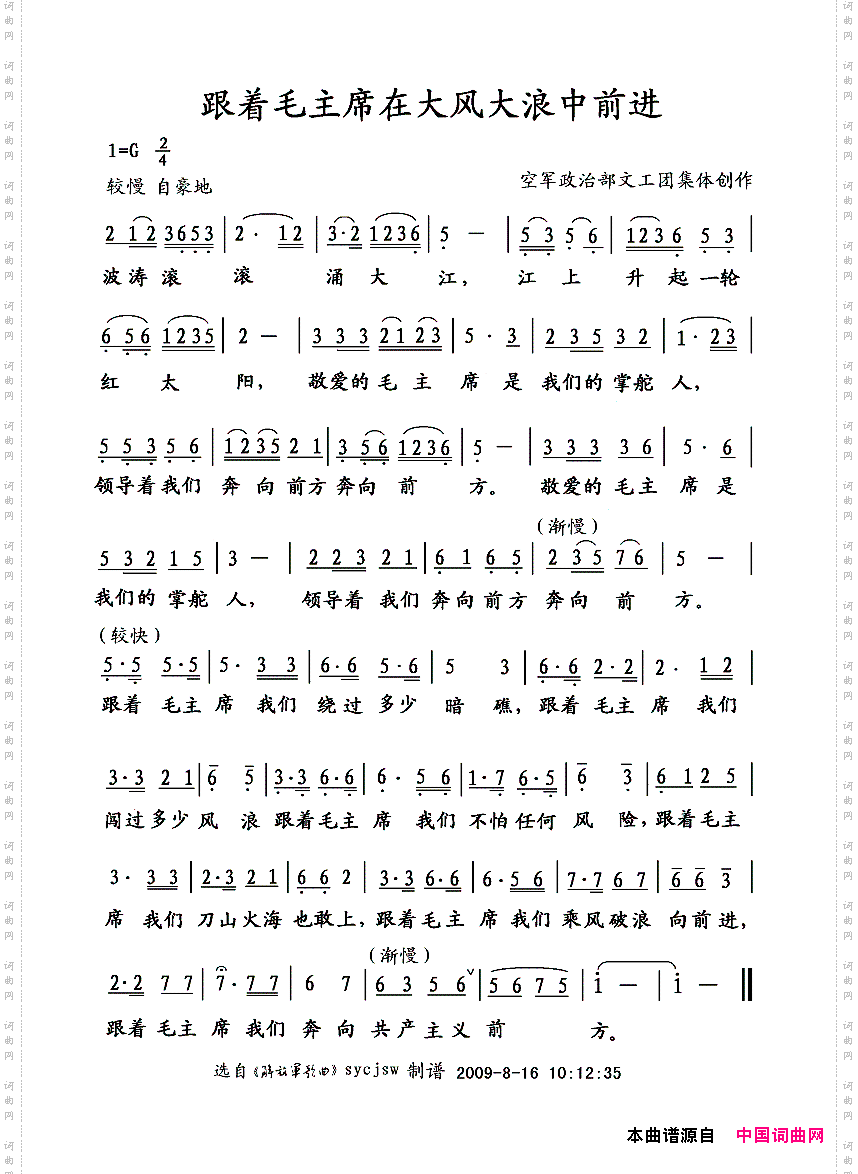 跟着毛主席在大风大浪中前进
1=G 2/4
较慢 自豪地
空军政治部文工团集体创作
2 12 3653 | 2· 12 | 3·2 1236 | 5 – | 53 56 | 1236 53 |
波涛滚 滚 涌大 江, 江上 升起一轮
656 1235 | 2 – | 333 2123 | 5· 3 | 235 32 | 1· 23 |
红 太 阳, 敬爱的毛主 席是我们的掌舵人,
553 56 | 1235 21 | 356 1236 | 5 – | 333 36 | 5· 6 |
领导着我们 奔向前方奔向 前 方。 敬爱的毛主 席是
(渐慢)
532 15 | 3 – | 223 21 | 61 65 | 235 76 | 5 – |
我们的掌舵 人, 领导着 我们奔向前方 奔向 前 方。
(较快)
5·5 5·5 | 5· 33 | 6·6 5·6 | 5 3 | 6·6 2·2 | 2· 12 |
跟着 毛主 席 我们 绕过多少 暗 礁, 跟着毛主 席 我们
3·3 21 | 6 5 | 3·3 6·6 | 6· 56 | 1·7 6·5 | 6 3 | 6 12 5 |
闯过多少风 浪 跟着毛主 席 我们 不怕任何 风 险, 跟着毛主
3· 33 | 2·3 21 | 66 2 | 3·3 6·6 | 6·56 | 7·7 67 | 66 3 |
席 我们 刀山火海 也敢上, 跟着毛主 席我们 乘风破浪 向前进,
(渐慢)
2·2 77 | 7·77 | 6 7 | 63 56 | 5675 | 1 – | 1 – ‖
跟着 毛主 席 我们 奔 向 共产主义 前 方。
选自《解放军歌曲》sycjsw 制谱 2009-8-16 10:12:35
本曲谱源自 中国词曲网